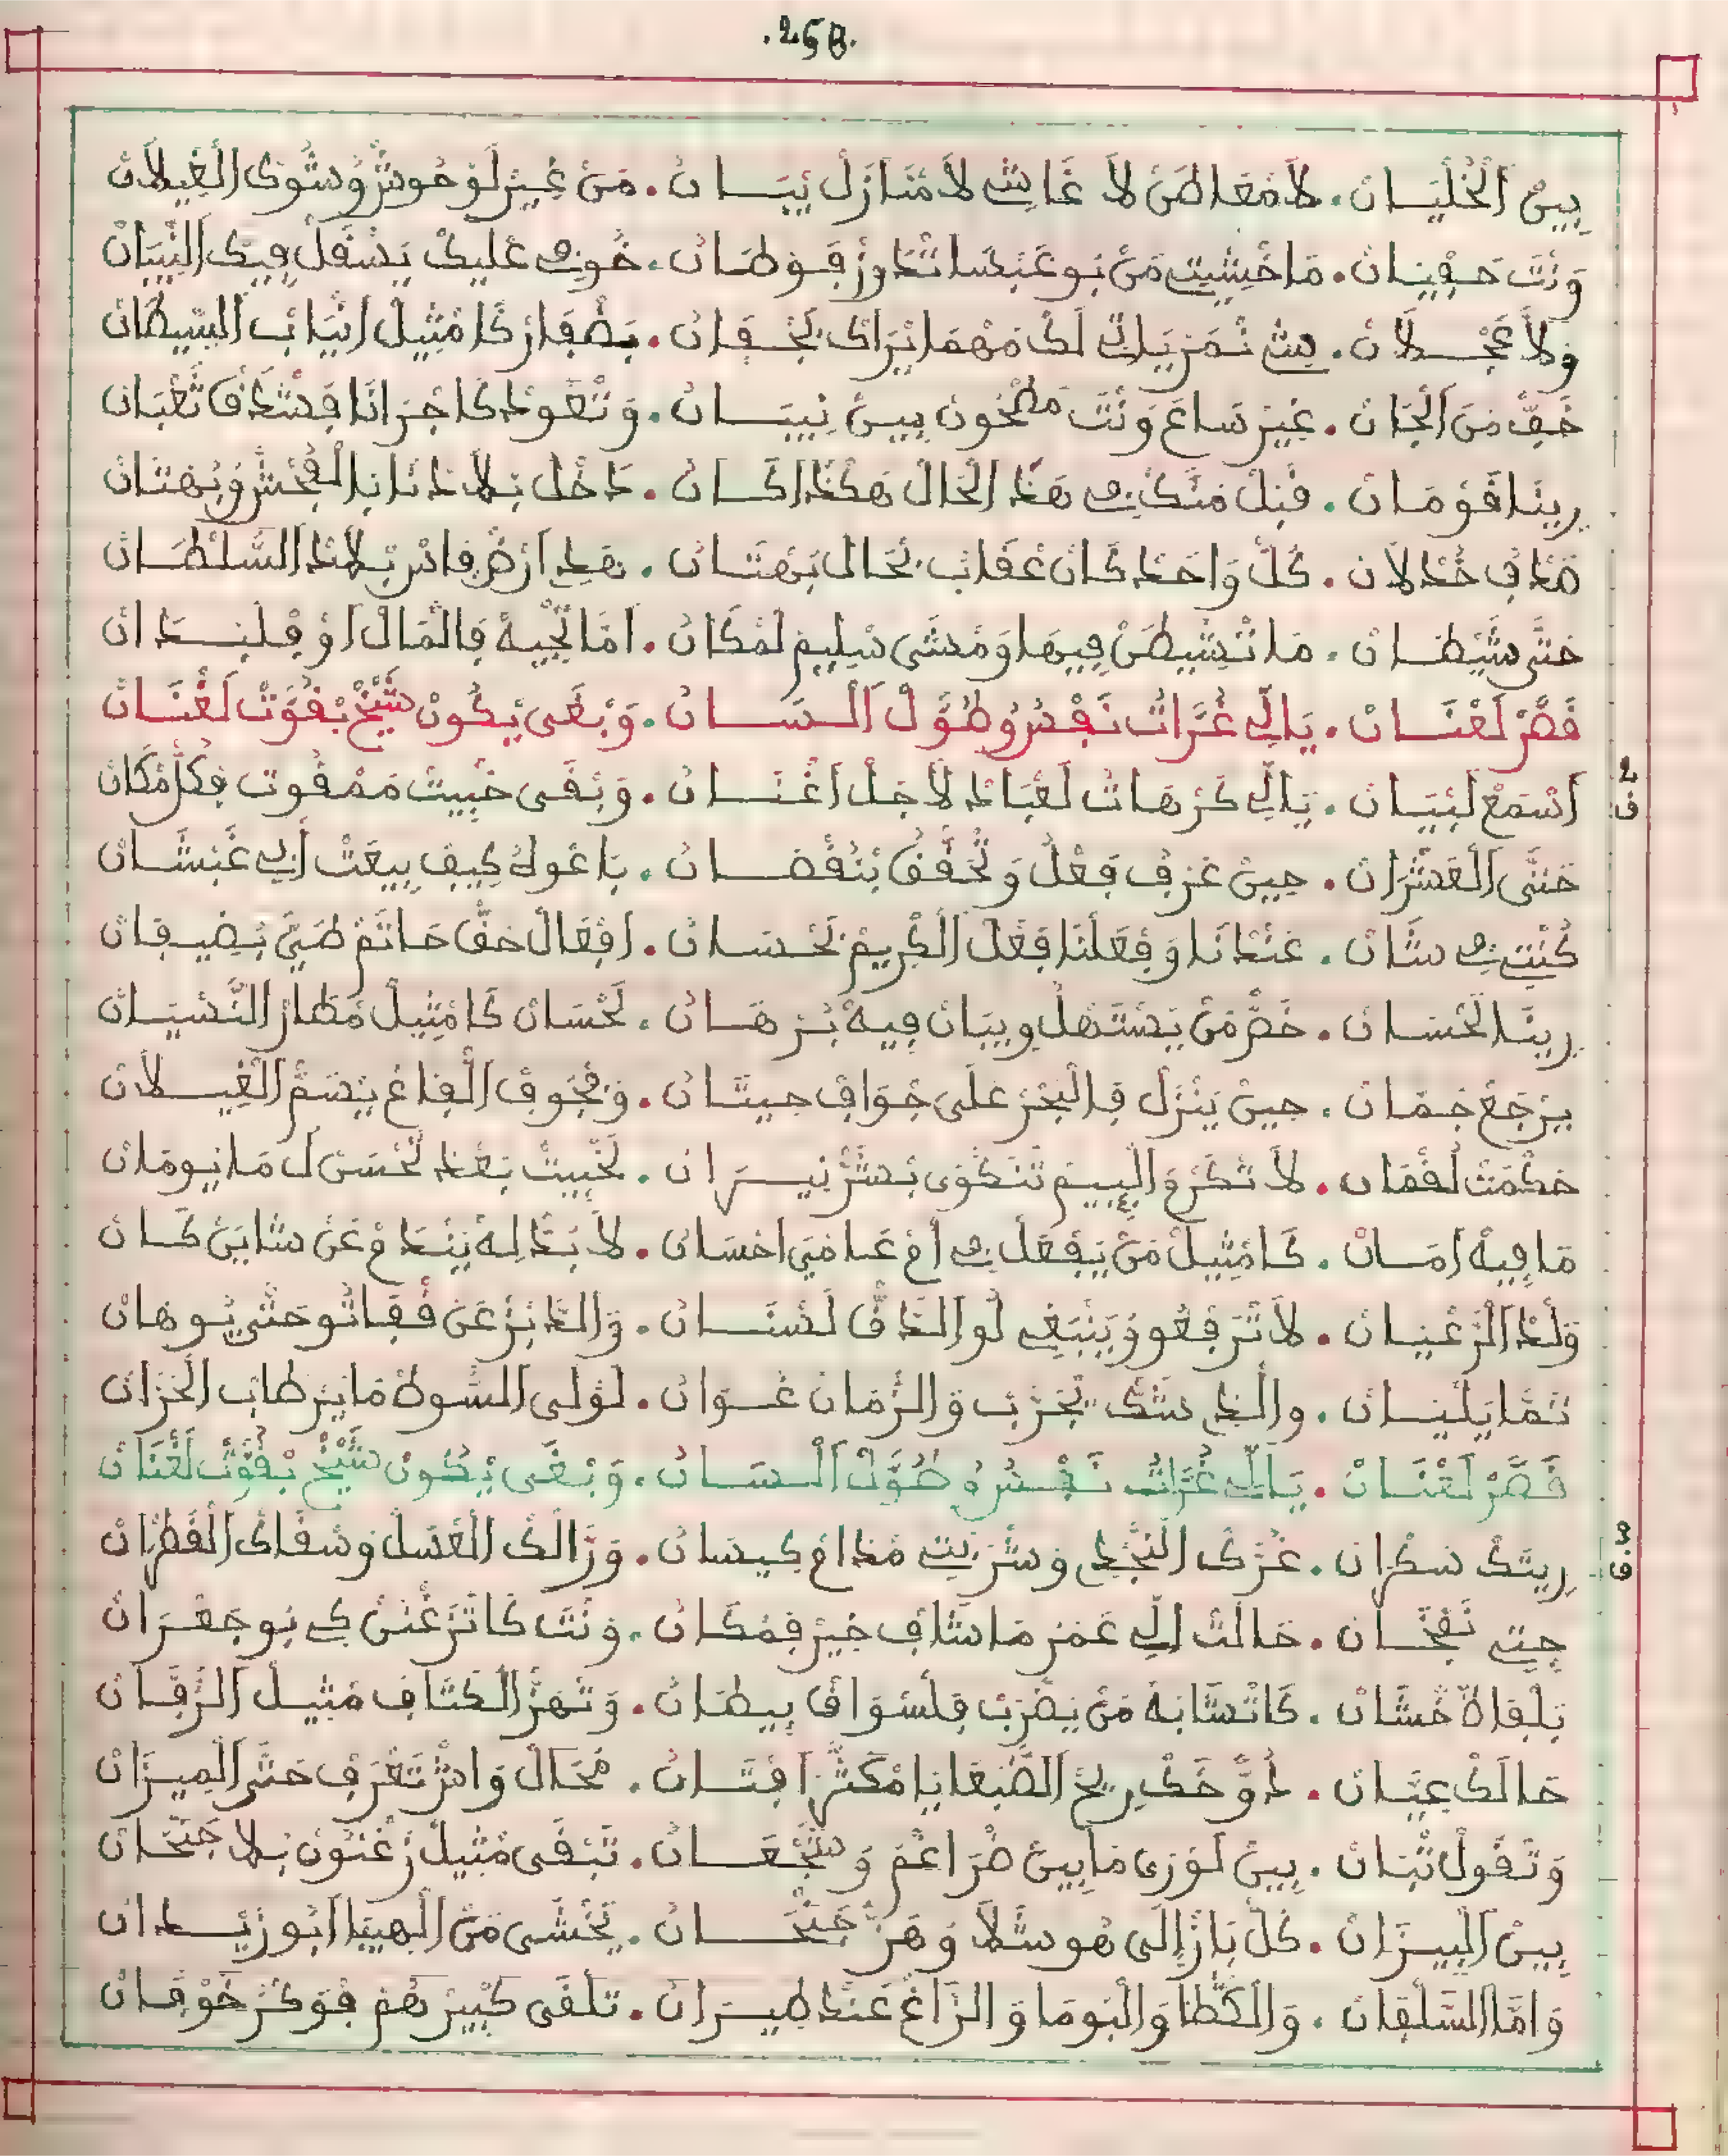 .258.
بِينْ اَلْخُلْيَانْ . لاَمْعَاطَنْ لاَ غَاشِي لاَ مْنَازَلْ تِيبَانْ . مَنْ غِيرْ لَوْحُوشْ وُشْوَى اَلْغِيلاَنْ
وَنْتَ حَفْيَانْ . مَاخْشِيتِي مَنْ بُوعَنْسَا تْدَاوِزْ فَوْطَانْ . خُوفِي عْلِيكْ يَسْفَلْ فِيكْ اَلنِّيبَانْ
وَلاَّ عَجْلاَنْ . تَمَزْ يَلْقَى لَكْ مَهْمَا يْرَاكْ بَخْفَانْ . بَضْفَارْ كَامْثِيلْ اَنْيَابْ اَلشِّيطَانْ
خَفْ مَنَ اَلْجَانْ . غِيرْ سَاعَ وَنْتَ مَطْحُونْ بِينْ نِيبَانْ . وَتْعُودْ كَاجْرَانَا فَشْدَقْ ثَعْبَانْ
رِيتَا قَوْمَانْ . قْبَلْ مَنَّكْ فِي هَذَا اَلْحَالْ هَكْذَا كَانْ . دَاخْلْ بْلاَدْنَا بَالْفَحْشْ وَبُهْتَانْ
صَدَفْ خُدْلاَنْ . كُلّْ وَاحَدْ كَانْ عْقَابْ بْحَالْ بَهْتَانْ . هَدِ اَرْضْ فَاسْ بْلاَدْ اَلسُّلْطَانْ
حَتَّى شِيطَانْ . مَا تْشِيطَنْ فِيهَا وَمْشَى سْلِيمْ لَمْكَانْ . اَمَّا تْجِيهْ فَالْمَالْ اَوْ فْلَبْدَانْ
قَصَّرْ لَعْنَانْ . يَالِّي غَرَّاتْ نَفْسُ وُطُوَّلْ اَلْسَانْ . وَبْغَى يْكُونْ شِيخْ بْقُوَّتْ لَغْنَانْ
2 ق
اَسْمَعْ لَبْيَانْ . يَالِّي كَرْهَاتْ لَعْبَادْ لاَجْلْ اَغْنَانْ . وَبْقَى خْبِيثْ مَمْقُوتْ فِكُلّْ مْكَانْ
حَتَّى اَلْعَشْرَانْ . حِينْ عَرْفْ فَعْلُ وَتْحَقَّقْ بَنُقْصَانْ . بَاعُوكْ كِيفْ بِيعَتْ أَبِي غَبْشَانْ
كُنْتِ فِي شَانْ . عَنْدَنَا وَفْعَلْنَا فَعْلْ اَلْكْرِيمْ بَحْسَانْ . اَفْعَالْ حَقّْ حَاتَمْ طَيّْ بْضِيفَانْ
رِيتَا لَحْسَانْ . خَصّْ مَنْ يَسْتَهْلُ وِيبَانْ فِيهْ بُرْهَانْ . لَحْسَانْ كَامْثِيلْ مْطَارْ اَلنَّسْيَانْ
يَرْجَعْ خَمَّانْ . حِينْ يَنْزَلْ فَالْبْحَرْ عَلَى جْوَافْ حِيتَانْ . وَفْجُوفْ اَلْفَاعْ يَنْسَمّْ اَلْغِيلاَنْ
حَكْمَتْ لُقْمَانْ . لاَ تْكَرَّمْ اَلِّيِيمْ تَنْكْوَى بْشَرّْ نِيرَانْ . لَخْبِيثْ بَعْدْ لَحْسَنْ لُ مَا يُومَانْ
مَافِيهْ اَمَانْ . كَامْثِيلْ مَنْ يَفْعَلْ فِي أُمّْ عَامَي احْسَانْ . لاَ بَدّْ لِهْ يَنْدَمْ عَنْ شَايَنْ كَانْ
وَلْدْ اَلزَّغْبَانْ . لاَ تْرَفْعُو وَيَنْبَغِي لُو اَلدَّقْ لَسْنَانْ . وَالدَّبْزْ عَنْ قْفَاتُو حَتَّى يُوهَانْ
تَمَّا يَلْيَانْ . وِالَّدِي شَكّْ يْجَرَّبْ وَالزَّمَانْ عْوَانْ . لَوْلَى اَلسُّوطْ مَايَرْطَابْ اَلْخَزَّانْ
قَصَّرْ لَعْنَانْ . يَالِّي غَرَّاتْ نَفْسُ وُطُوَّلْ اَلْسَانْ . وَبْغَى يْكُونْ شِيخْ بْقُوَّتْ لَغْنَانْ
3 ق
رِيتَكْ سَكْرَانْ . غَرَّكْ اَلنَّجْدِي وَشْرَبْتِ مْدَامْ كِيسَانْ . وَزَّالَكْ اَلْعْسَلْ وَسْقَاكْ اَلْقَطْرَانْ
جِتِي نَفْخَانْ . حَالْتْ اَلِّي عَمَّرْ مَاشَافْ خِيرْ فَمْكَانْ . وَنْتَ كَاتْزَغْنَنْ كِي بُوجَعْرَانْ
بَلْقَاةْ خْشَانْ . كَاتْشَابَهْ مَنْ يَضْرَبْ فَلْسْوَاقْ بِيطَانْ . وَتْهَزّْ اَلْكْتَافْ مْثِيلْ اَلزَّفَّانْ
حَالَكْ عِيَّانْ . دَوَّخَكْ رِيحْ اَلصَّبْعَا يَامْكَثَّرْ اَفْتَانْ . مُحَالْ وَاشْ تَعْرَفْ حَتَّى اَلْمِيزَانْ
وَتْقُولْ تْبَانْ . بِينْ لَوْرَى مَابِينْ ضْرَاغَمْ وَشُجْعَانْ . تَبْقَى مْثِيلْ زَغْنُونْ بْلاَ جَنْحَانْ
بِينْ اَلْبِيزَانْ . كُلّْ بَازْ إِلَى هُوشَلاَّ وَهَزّْ جَنْحَانْ . يَخْشَى مَنْ اَلْهِيبَا اَبُوزِيدَانْ
وَامَّا اَلسَّلْقَانْ . وَالْكْطَا وَالْبُومَا وَالزَّاغْ عَنْدْ طِيرَانْ . تَلْقَى كْبِيرْهُمْ فْوَكْرْ خَوْفَانْ